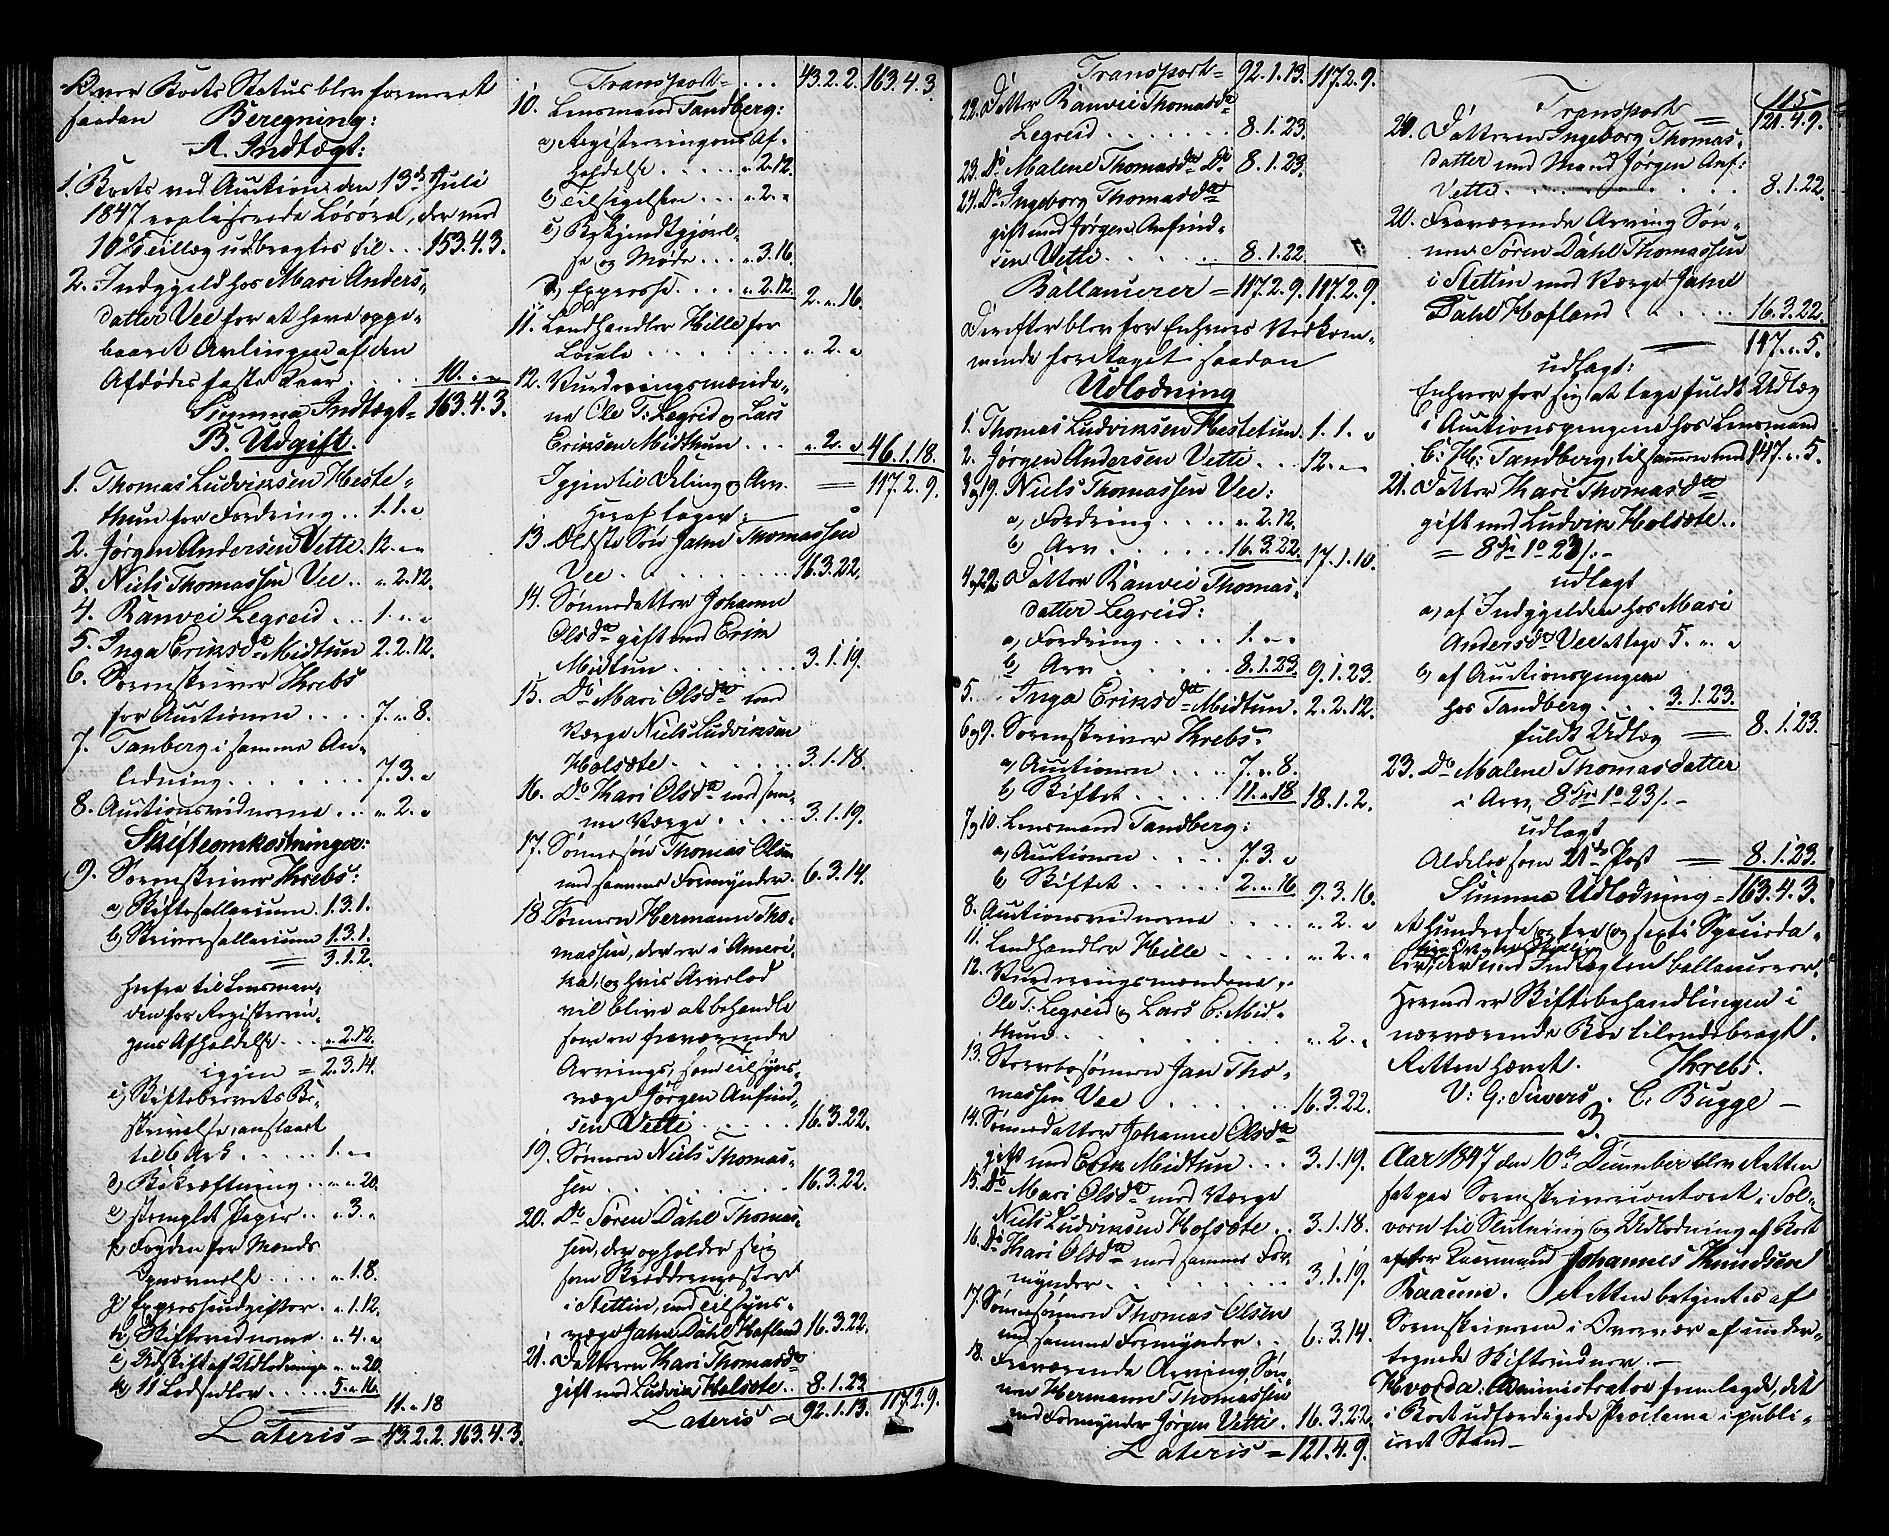 Over Boets Status blev formeret
saadan Beregning:
A. Indtægt:
1. Boets ved Auction den 13de Juli
1847 realiserede Løsøre, der med
10% Tillæg udbragtes til .. 153.4.3.
2. Indgjeld hos Mari Anders-
datter Vee for at have oppe-
baaret Avlingen af den
Afdødes faste Kaar. . . 10. " "
Summa Indtægt = 163.4.3.
B. Udgift.
1. Thomas Ludvigsen Heste-
thun for Fordring .. 1.1. "
2. Jørgen Andersen Vetti. 12. " "
3. Niels Thomassen Vee .. " 2.12.
4. Ranvei Legreid ... 1. " "
5. Inga Eriksda Midtun 2.2.12.
6. Sorenskriver Krebs
for Auctionen .... 7. " 8.
7. Tanberg i samme An-
ledning ....... 7.3. "
8. Auctionsvidnerne ... " 2. "
Skifteomkostninger:
9. Sorenskriver Krebs:
a) Skiftesallarium. 1.3.1.
b) Skriversallarium 1.3.1.
= 3.1.2.
herfra til Lensman-
den for Registrerin-
gens Afholdelse ... " 2.12.
igjen = 2.3.14.
c) Skiftebrevets Be-
skrivelse, anslaaet
til 6 Ark ..... 1. " "
d) Bekræftning .. " " 20.
e) stemplet Papir .. " 3. "
f) Fogden for Mænds
Opnævnelse .... " 1.8.
g) Expresseudgifter. " 1.12.
h) Skiftevidnerne .. " 4. "
i) Udskrift af Udlodningen " " 20.
k) 11 Lodsedler .... 5. " 16.
11. " 18
Lateris = 43.2.2. 163.4.3.
Transport = ... 43.2.2. 163.4.3.
10. Lensmand Tandberg:
a) Registreringens Af-
holdelse ..... " 2.12.
b) Tilsigelsen ... " 2. "
c) Bekjendtgjørel-
se og Møde ... " 3.16.
d) Expresse .... " 2.12.
2. " 16.
11. Landhandler Hille for
Locale ........ " 2. "
12. Vurderingsmænde-
ne Ole T: Legreid og Lars
Eriksen Midthun ... " 2. " 46.1.18.
Igjen til Deling og Arv. = 117.2.9.
heraf tager:
13. Ældste Søn Jahn Thomassen
Vee .......... 16.3.22.
14. Sønnedatter Johanne
Olsda gift med Erik
Midtun ....... 3.1.19.
15. Do Mari Olsda med
Værge Niels Ludvigsen
Holsæte ....... 3.1.18.
16. Do Kari Olsda med sam-
me Værge ..... 3.1.19.
17. Sønnesøn Thomas Olsen
med samme Formynder. 6.3.14.
18. Sønnen Hermann Tho-
massen, der er i Ameri-
ka, og hvis Arvelod
vil blive at behandle
som en fraværende
Arvings, som Tilsyns-
værge Jørgen Anfind-
sen Vetti ..... 16.3.22.
19. Sønnen Niels Thomas-
sen ......... 16.3.22.
20. Do Søren Dahl Thomas-
sen, der opholder sig
som Skræddermester
i Stettin, med Tilsyns-
værge Jahn Dahl Hafland 16.3.22.
21. Datteren Kari Thomasda
gift med Ludvig Holsæte .. 8.1.23
Lateris = 92.1.13. 117.2.9.
Transport = 92.1.13. 117.2.9.
22. Datter Ranvei Thomasda
Legreid ....... 8.1.23.
23. Do Malene Thomasda Do 8.1.23.
24. Do Ingeborg Thomasda
gift med Jørgen Anfind-
sen Vetti ...... 8.1.22.
Ballancerer = 117.2.9. 117.2.9.
Derefter blev for Enhvers Vedkom-
mende foretaget saadan
Udlodning
1. Thomas Ludvigsen Hestetun. 1.1. "
2. Jørgen Andersen Vetti ... 12. " "
3 og 19. Niels Thomassen Vee:
a) Fordring .... " 2.12.
b) Arv ...... 16.3.22. 17.1.10.
4 og 22. Datter Ranvei Thomas-
datter Legreid:
a) Fordring .... 1. " "
b) Arv ..... 8.1.23. 9.1.23.
5. Inga Eriksda Midtun. 2.2.12.
6 og 9. Sorenskriver Krebs:
a) Auctionen .... 7. " 8.
b) Skiftet ..... 11. " 18 18.1.2.
7 og 10. Lensmand Tandberg:
a) Auctionen .... 7.3. "
b) Skiftet ..... 2. " 16 9.3.16.
8. Auctionsvidnerne .... " 2. "
11. Landhandler Hille .... " 2. "
12. Vurderingsmændene,
Ole T: Legreid og Lars E: Mid-
thun ......... " 2. "
13. Stervbosønnen Jan Tho-
massen Vee ...... 16.3.22.
14. Sønnedatter Johanne Olsda
gift med Erik Midtun ... 3.1.19.
15. Do Mari Olsda med Værge
Niels Ludvigsen Holsæte .. 3.1.18.
16. Do Kari Olsda med samme For-
mynder ........ 3.1.19.
17. Sønnesønnen Thomas Olsen
med samme Formynder .. 6.3.14.
18. Fraværende Arving, Søn-
nen Hermann Thomassen
med Formynder Jørgen Vetti. 16.3.22.
Lateris = 121.4.9.
11.5
Transport = 121.4.9.
24. Datteren Ingeborg Thomas-
datter med Mand Jørgen Anf:
Vetti ......... 8.1.22.
20. Fraværende Arving Søn-
nen Søren Dahl Thomassen
i Stettin med Værge Jahn
Dahl Hafland ..... 16.3.22.
= 147. " 5.
udlagt:
Enhver for sig at tage fuldt Udlæg
i Auctionspengene hos Lensmand
C: H: Tandberg, tilsammen med 147. " 5.
21. Datter Kari Thomasda
gift med Ludvig Holsæte ..
= 8 Spd 1 o 23 s. -
udlagt
a) af Indgjelden hos Mari
Andersda Vee at tage 5. " "
b) af Auctionspengene
hos Tandberg ... 3.1.23.
fuldt Udlæg = 8.1.23.
23. Do Malene Thomasdatter
i Arv 8 Spd 1 o 23 s. -
udlagt
Aldeles som 21de Post = 8.1.23.
Summa Udlodning = 163.4.3.
et hundrede og tre og sexti Speciesda-
ler, der med Indtægten ballancerer.
Hermed er Skiftebehandlingen i
nærværende Boe tilendebragt.
Retten hævet. Krebs.
V: G: Siwers. C. Bugge -
3.
Aar 1847 den 10de December blev Retten
sat paa Sorenskrivercontoret i Sol-
vorn til Slutning og Udlodning af Boet
efter Kaarmand Johannes Knudsen
Kaaune. Retten betjentes af
Sorenskriveren i Overvær af under-
tegnede Skiftevidner. -
Hvorda: Administrator fremlagde, det
i Boet udfærdigede Proclama i publi-
ceret Stand -